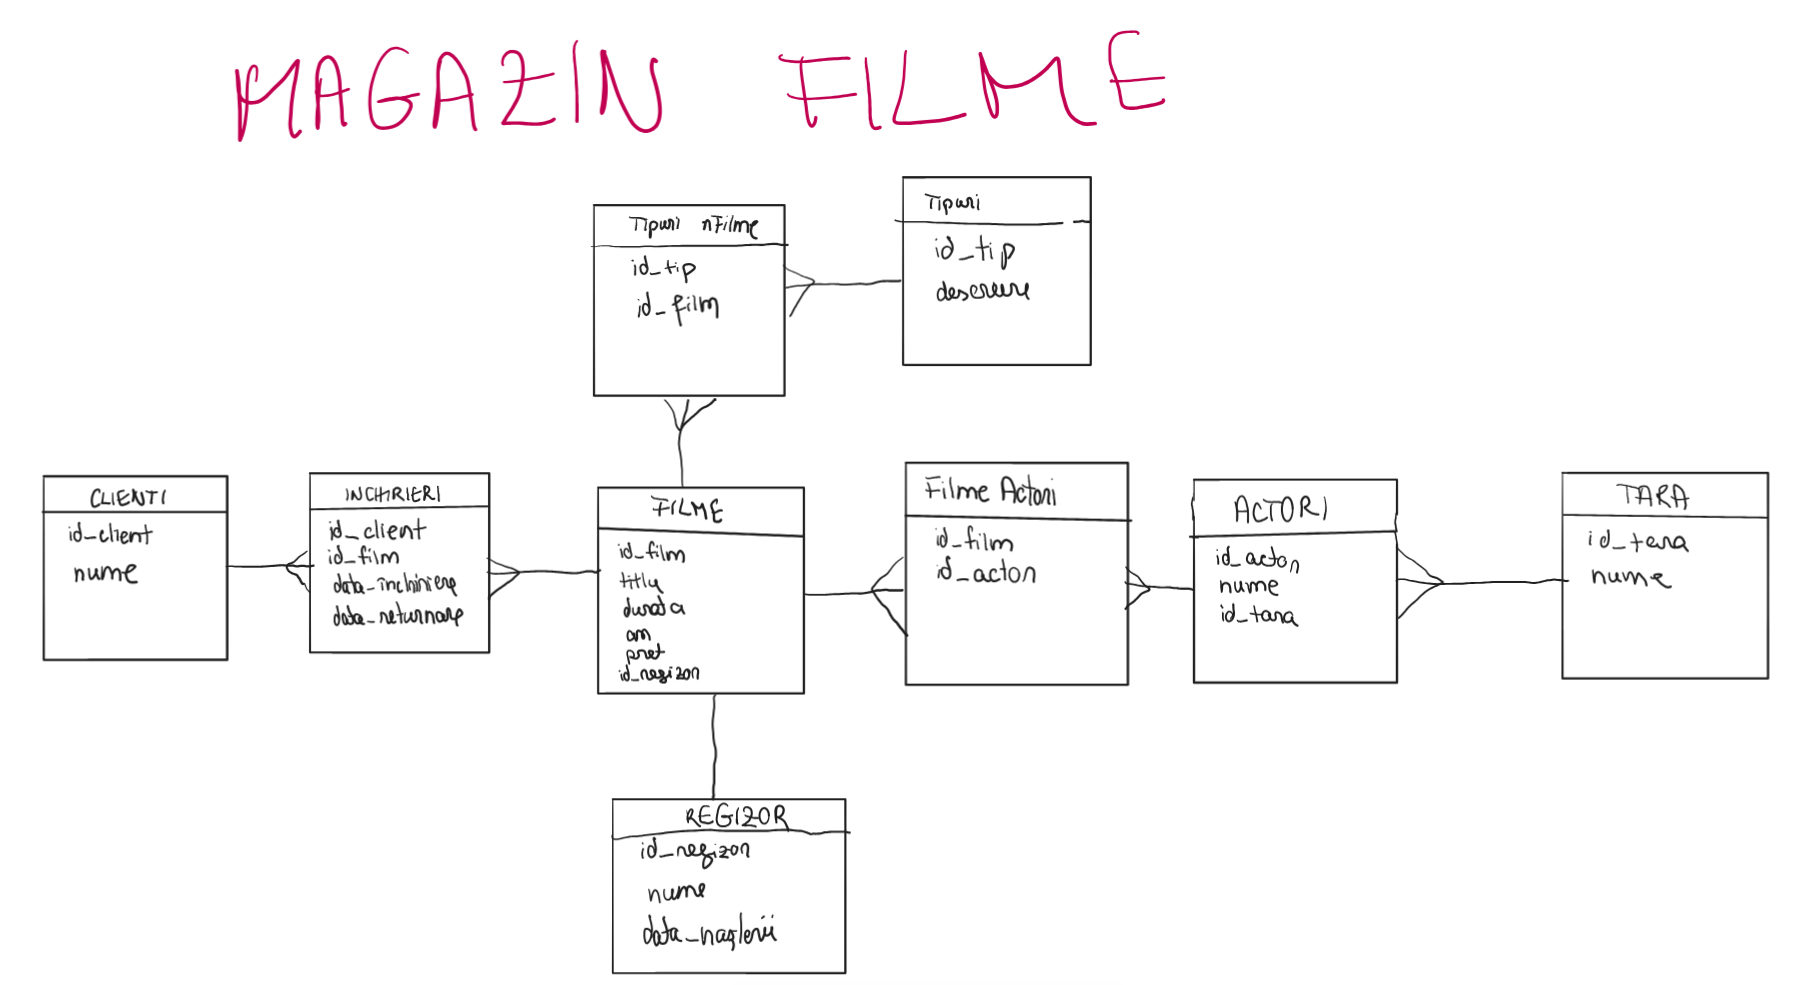 MAGAZIN FILME
Tipuri nFilme
id_tip
id_film
Tipuri
id_tip
descriere
CLIENTI
id_client
nume
INCHIRIERI
id_client
id_film
data_inchiriere
data_returnare
FILME
id_film
titlu
durata
an
pret
id_regizor
Filme Actori
id_film
id_actor
ACTORI
id_actor
nume
id_tara
TARA
id_tara
nume
REGIZOR
id_regizor
nume
data_nașterii